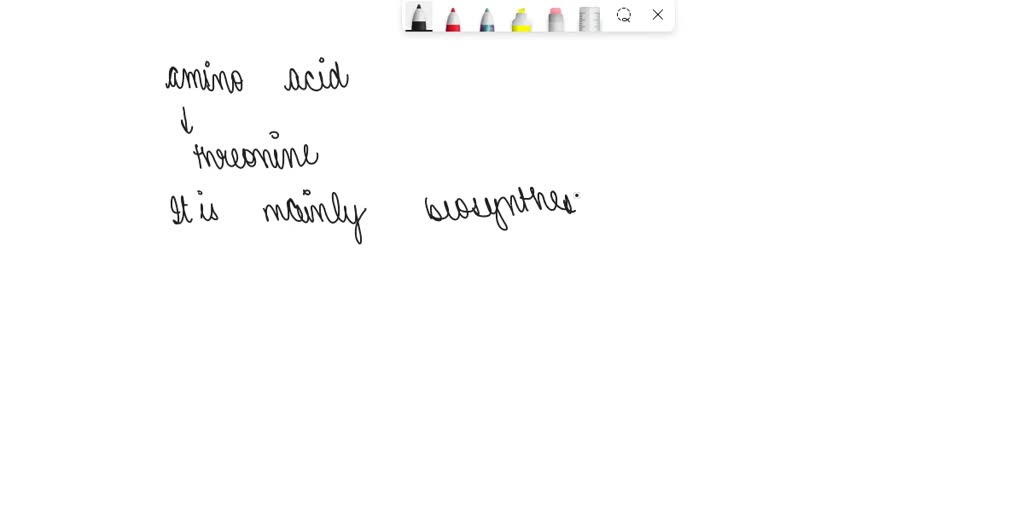 amino acid
↓
threonine
It is mainly biosynthes